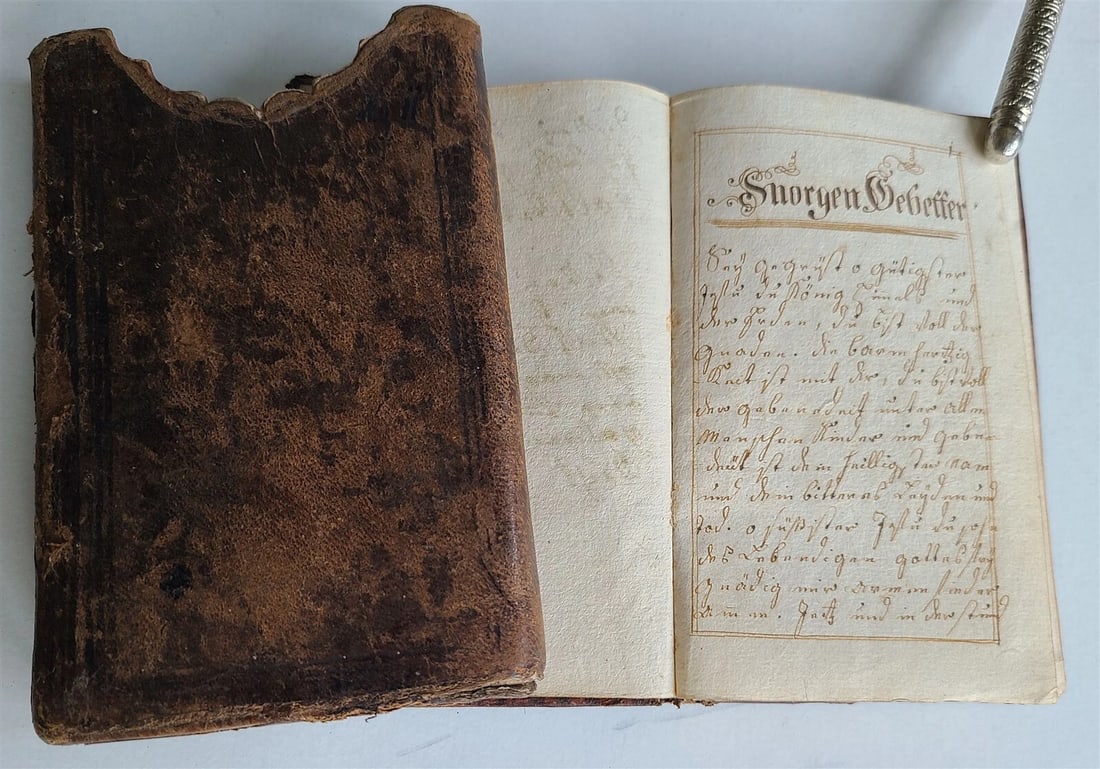 1
Morgen Gebetter
Sey gegrüst o gütigster
Jesu du König Himels und
der Erden, du bist voll der
Gnaden. die barmhertzig
Keit ist mit dir, du bist voll
der gebenedeit unter allen
Menschen Kinder und geben
deüt ist dein heilligster nam
und dein bitteres Leyden und
Tod. o süssister Jesu du sohn
des Lebendigen gottes sey
gnädig mir armen sinder
Amen. Jetz und in der stund